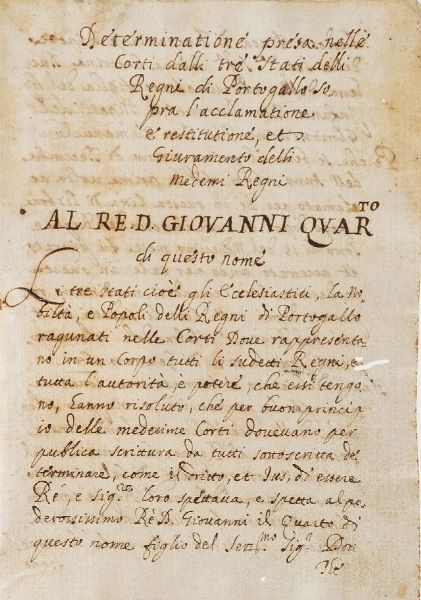 Determinatione presa nelle
Corti dalli tré Stati delli
Regni di Portogallo So,
pra l'acclamatione
e restitutione, et
Giuramento delli
medemi Regni
AL RE D. GIOVANNI QVARTO
di questo nome
Li tre Stati cioè gli Ecclesiastici, la No,
biltà, e Popoli delli Regni di Portogallo
ragunati nelle Corti Dove rappresenta
no in un Corpo tutti li sudetti Regni, e
tutta l'autorità, e potere, che essi tengo
no, hanno risoluto, che per buon princip
io delle medesime Corti dovevano per
publica scrittura da tutti sottoscritta de
terminare, come il dritto, et Jus, di essere
Ré, e Sig.re loro spettava, e spetta al po
derosissimo Ré D. Giovanni il Quarto di
questo nome figlio del Ser.mo Sig.r Don
The